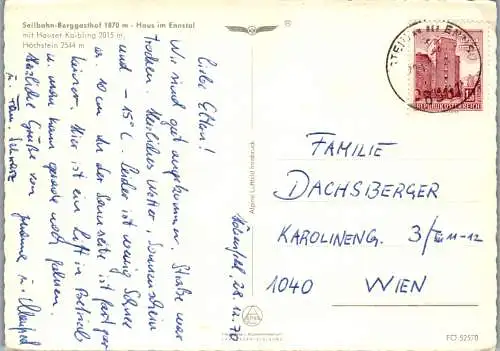 Seilbahn-Berggasthof 1870 m - Haus im Ennstal
mit Hauser Kaibling 2015 m,
Höchstein 2544 m
Liebe Eltern!
Wir sind gut angekommen, Straße war
trocken. Herrliches Wetter, Sonnenschein
und -15°C. Leider ist wenig Schnee
ca. 10 cm. An der Sonnseite ist fast gar
keiner. Hier ist ein Lift in Betrieb
u. man kann gerade noch fahren.
Herzliche Grüße von
u. Fam. Schwarz
28.12.70
Alpine Luftbild Innsbruck
®
REPUBLIK ÖSTERREICH
FAMILIE
DACHSBERGER
KAROLINENG. 3/ 11-12
1040 WIEN
FO 52570